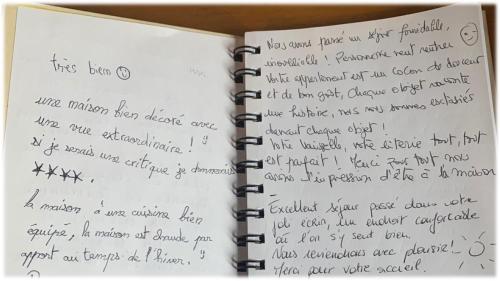 très bien
une maison bien décoré avec
une vue extraordinaire !
si je serais une critique je donnerais
★★★★.
la maison à une cuisine bien
équipe, la maison est chaude par
apport au temps de l'hiver.
Nous avons passé un séjour formidable,
inoubliable ! Personne ne veut rentrer
Votre appartement est un cocon de douceur
et de bon goût, chaque objet raconte
une histoire, nous nous sommes extasiés
devant chaque objet !
Votre vaisselle, votre literie tout, tout
est parfait ! Merci pour tout nous
avons l'impression d'être à la maison
Excellent séjour passé dans votre
joli écrin, un endroit confortable
où l'on s'y sent bien.
Nous reviendrons avec plaisir !
Merci pour votre accueil.